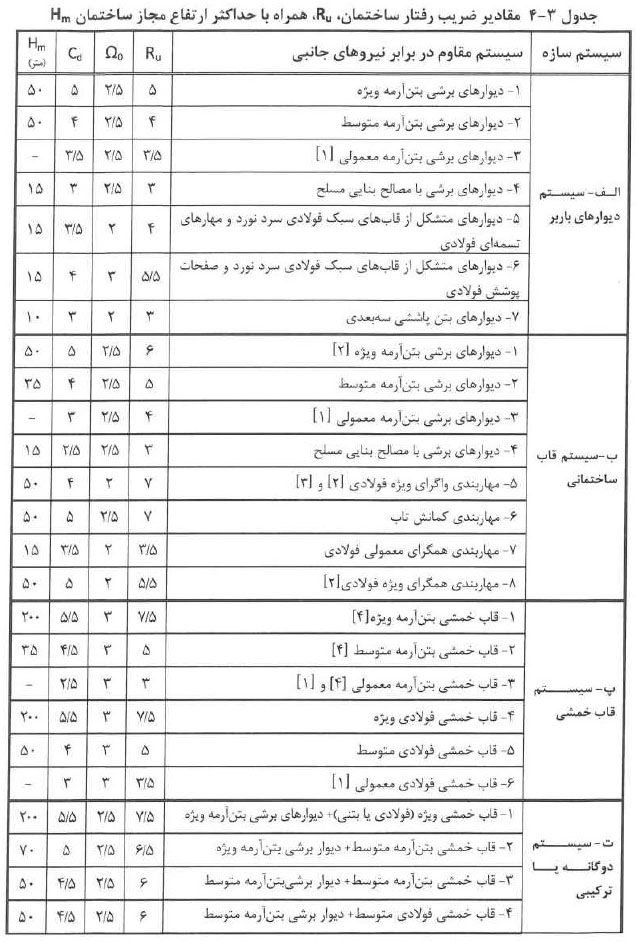 جدول ۳-۴ مقادیر ضریب رفتار ساختمان، Ru، همراه با حداکثر ارتفاع مجاز ساختمان Hm
سیستم سازه | سیستم مقاوم در برابر نیروهای جانبی | Ru | Ω0 | Cd | Hm (متر)
الـف- سیـستم دیوارهای باربر
۱- دیوارهای برشی بتن‌آرمه ویژه | ۵ | ۲/۵ | ۵ | ۵۰
۲- دیوارهای برشی بتن‌آرمه متوسط | ۴ | ۲/۵ | ۴ | ۵۰
۳- دیوارهای برشی بتن‌آرمه معمولی [۱] | ۳/۵ | ۲/۵ | ۳/۵ | -
۴- دیوارهای برشی با مصالح بنایی مسلح | ۳ | ۲/۵ | ۳ | ۱۵
۵- دیوارهای متشکل از قاب‌های سبک فولادی سرد نورد و مهارهای
تسمه‌ای فولادی | ۴ | ۲ | ۳/۵ | ۱۵
۶- دیوارهای متشکل از قاب‌های سبک فولادی سرد نورد و صفحات
پوشش فولادی | ۵/۵ | ۳ | ۴ | ۱۵
۷- دیوارهای بتن پاششی سه‌بعدی | ۳ | ۲ | ۳ | ۱۰
ب-سیـستم قاب ساختمانی
۱- دیوارهای برشی بتن‌آرمه ویژه [۲] | ۶ | ۲/۵ | ۵ | ۵۰
۲- دیوارهای برشی بتن‌آرمه متوسط | ۵ | ۲/۵ | ۴ | ۳۵
۳- دیوارهای برشی بتن‌آرمه معمولی [۱] | ۴ | ۲/۵ | ۳ | -
۴- دیوارهای برشی با مصالح بنایی مسلح | ۳ | ۲/۵ | ۲/۵ | ۱۵
۵- مهاربندی واگرای ویژه فولادی [۲] و [۳] | ۷ | ۲ | ۴ | ۵۰
۶- مهاربندی کمانش تاب | ۷ | ۲/۵ | ۵ | ۵۰
۷- مهاربندی همگرای معمولی فولادی | ۳/۵ | ۲ | ۳/۵ | ۱۵
۸- مهاربندی همگرای ویژه فولادی[۲] | ۵/۵ | ۲ | ۵ | ۵۰
پ- سیــــستم قاب خمشی
۱- قاب خمشی بتن‌آرمه ویژه[۴] | ۷/۵ | ۳ | ۵/۵ | ۲۰۰
۲- قاب خمشی بتن‌آرمه متوسط [۴] | ۵ | ۳ | ۴/۵ | ۳۵
۳- قاب خمشی بتن‌آرمه معمولی [۴] و [۱] | ۳ | ۳ | ۲/۵ | -
۴- قاب خمشی فولادی ویژه | ۷/۵ | ۳ | ۵/۵ | ۲۰۰
۵- قاب خمشی فولادی متوسط | ۵ | ۳ | ۴ | ۵۰
۶- قاب خمشی فولادی معمولی [۱] | ۳/۵ | ۳ | ۳ | -
ت- سیــــستم دوگانـــه یـــا ترکیبی
۱- قاب خمشی ویژه (فولادی یا بتنی)+ دیوارهای برشی بتن‌آرمه ویژه | ۷/۵ | ۲/۵ | ۵/۵ | ۲۰۰
۲- قاب خمشی بتن‌آرمه متوسط+ دیوار برشی بتن‌آرمه ویژه | ۶/۵ | ۲/۵ | ۵ | ۷۰
۳- قاب خمشی بتن‌آرمه متوسط+ دیوار برشی‌بتن‌آرمه متوسط | ۶ | ۲/۵ | ۴/۵ | ۵۰
۴- قاب خمشی فولادی متوسط+ دیوار برشی بتن‌آرمه متوسط | ۶ | ۲/۵ | ۴/۵ | ۵۰